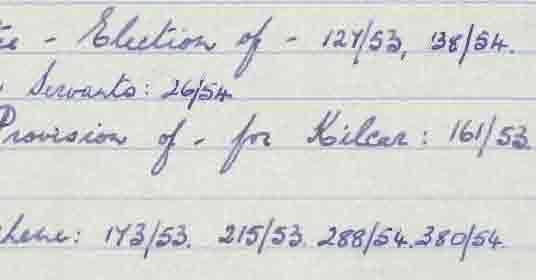 - Election of - 127/53, 38/54.
Servants: 26/54
Provision of - for Kilcar: 161/53.
173/53. 215/53. 288/54. 380/54.